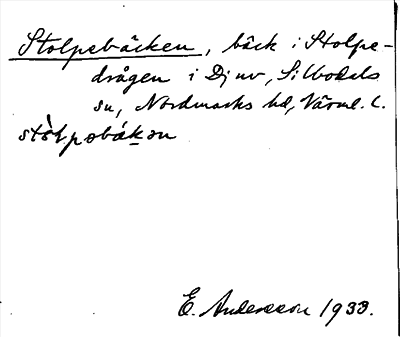 Stolpebäcken, bäck i Stolpe-
drågen i Djuv, Silbodals
sn, Nordmarks hd, Värml. l.
stòlpəbäkən
E. Andersson 1933.